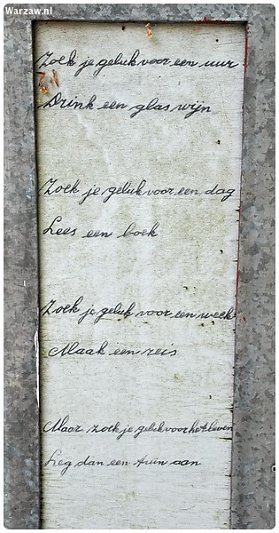 Warzaw.nl
Zoek je geluk voor een uur
Drink een glas wijn
Zoek je geluk voor een dag
Lees een boek
Zoek je geluk voor een week
Maak een reis
Maar zoek je geluk voor het leven
Leg dan een tuin aan